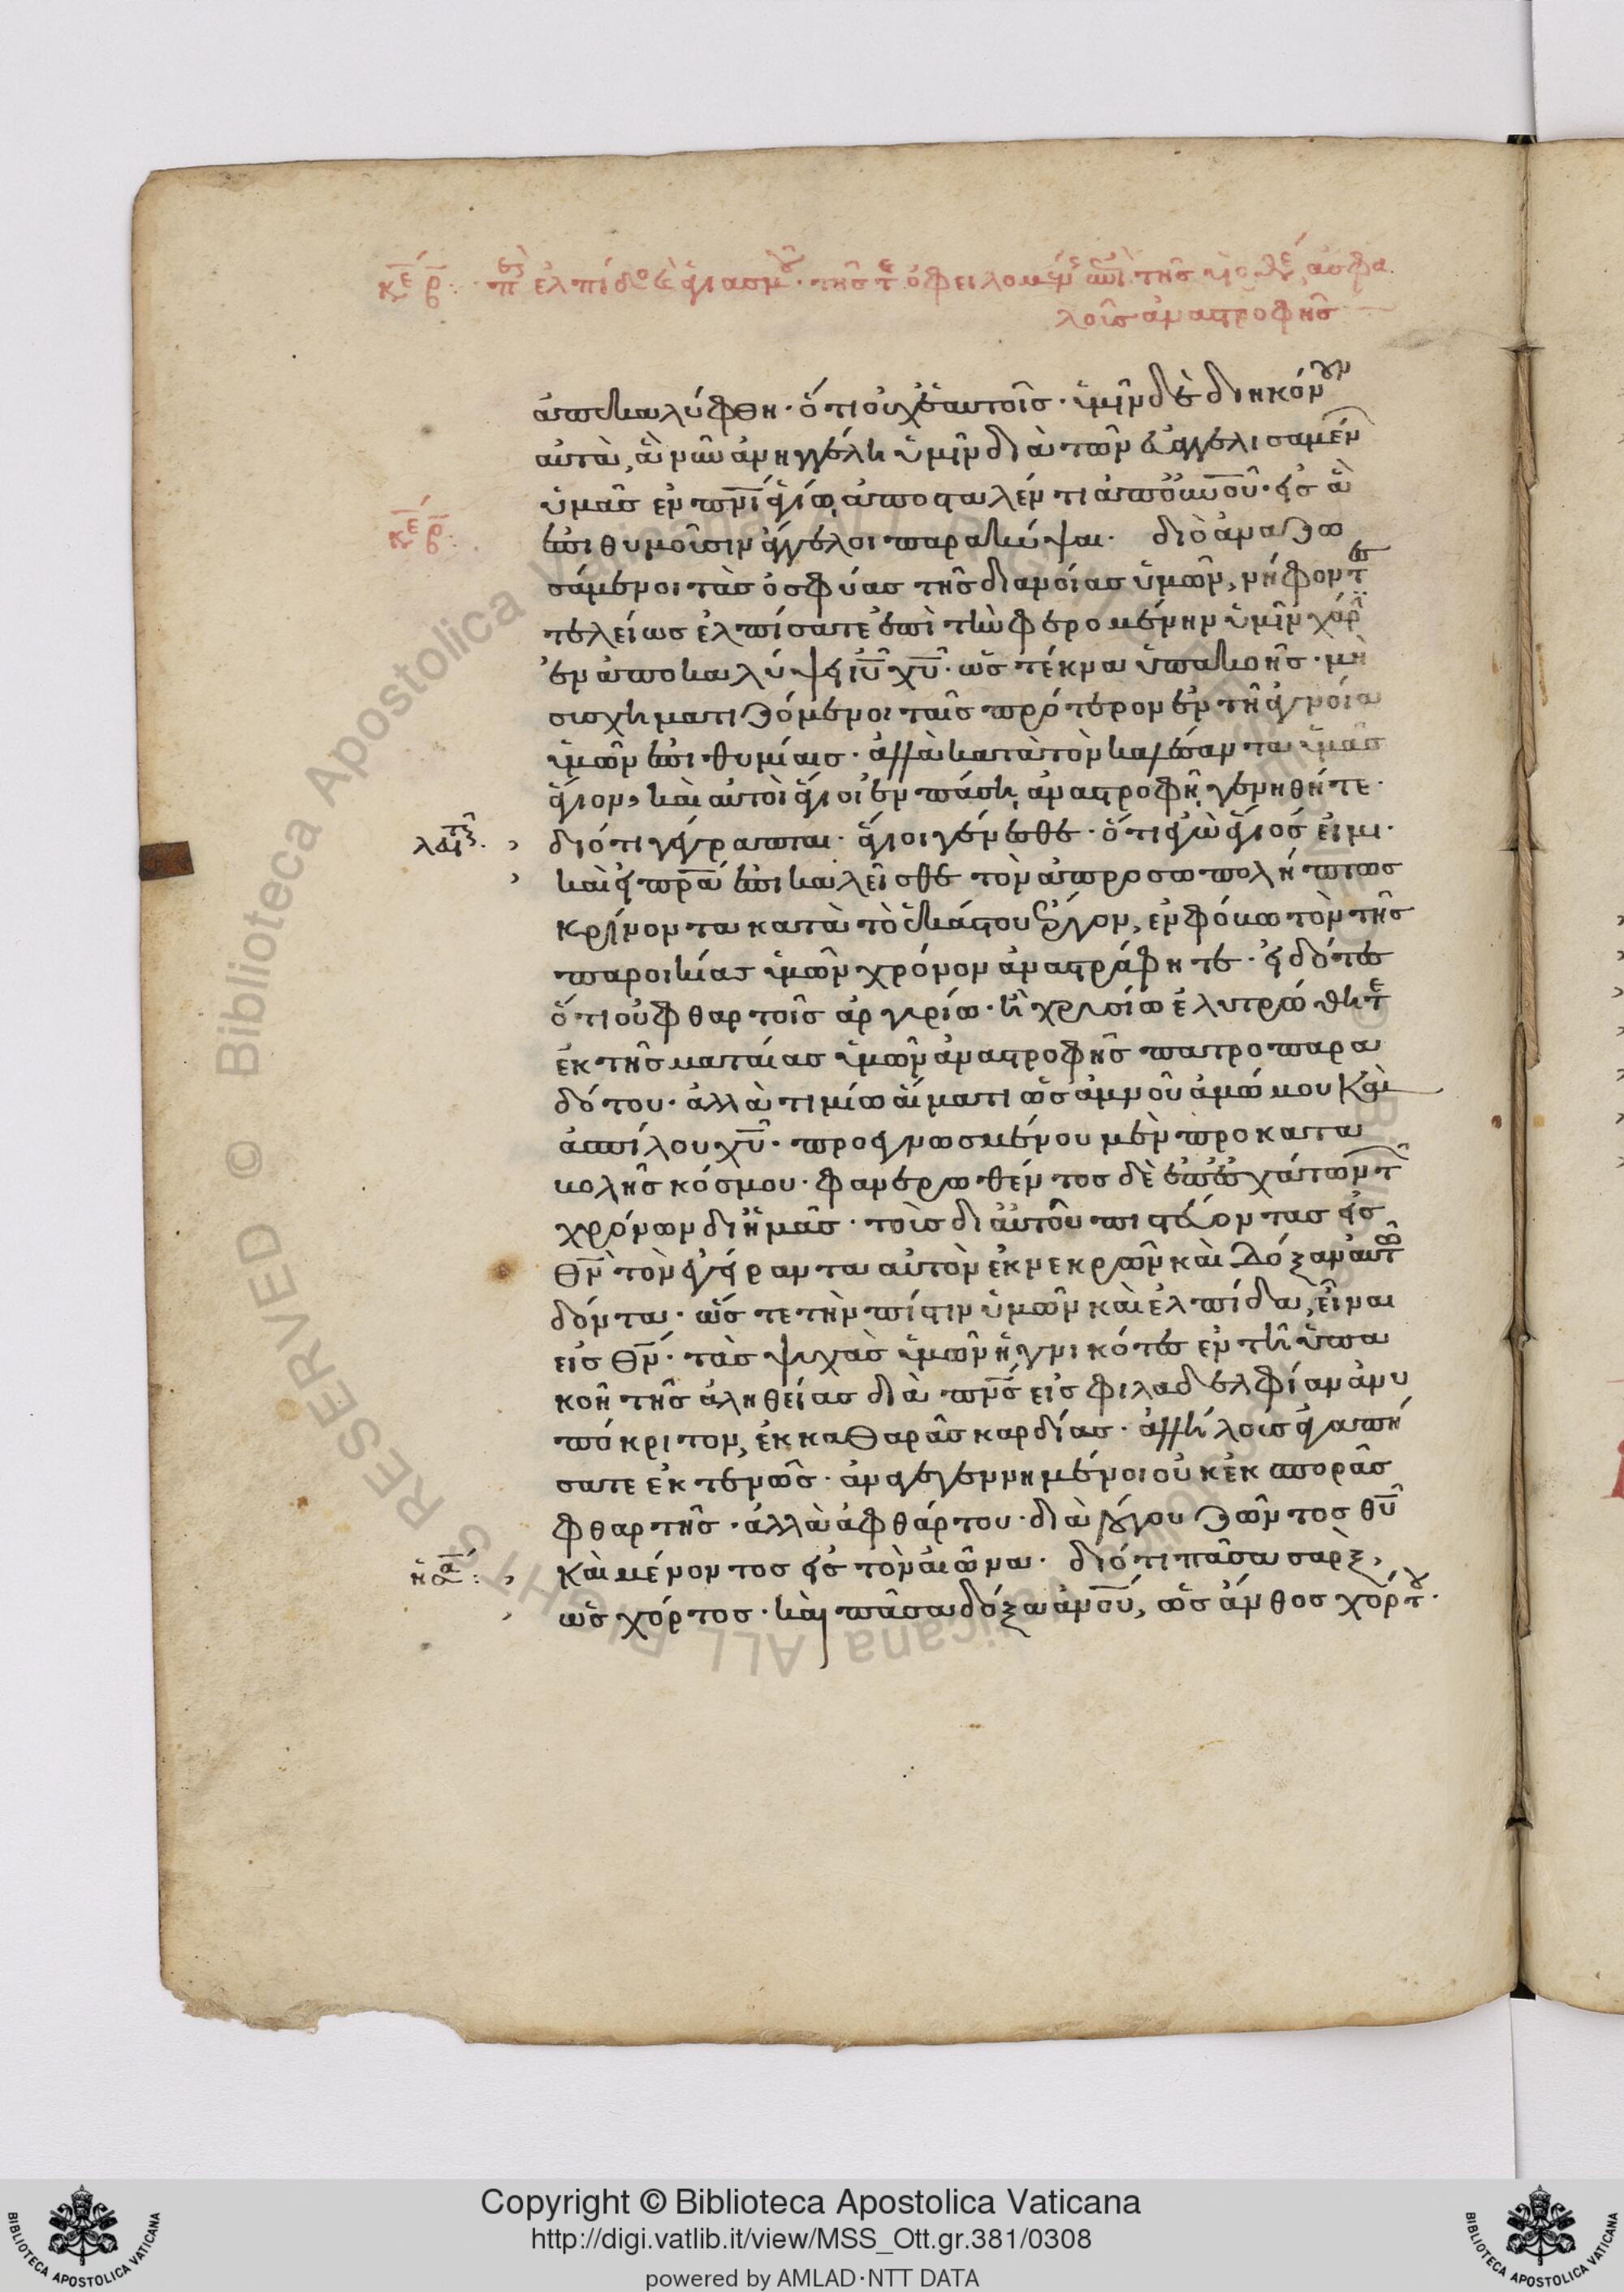 κε β: π ελπίδο ἁγιασμ. τῆς τ ὀφειλομέν ἀσφα
λοῦς ἀναστροφῆς
ἀπεκαλύφθη· ὅτι οὐχ ἑαυτοῖς· ἡμῖν δὲ διηκόνουν
αὐτὰ, ἃ νῦν ἀνηγγέλη ὑμῖν διὰ τῶν εὐαγγελισαμέν
ὑμᾶς ἐν πνι ἁγίω, ἀποσταλέντι ἀπ' οὐνου· εἰς ἃ
ἐπιθυμοῦσιν ἄγγελοι παρακύψαι. διὸ ἀναζω
κε β:
σάμενοι τὰς ὀσφύας τῆς διανοίας ὑμῶν, νήφοντες
τελείως ἐλπίσατε ἐπὶ τὴν φερομένην ὑμῖν χάρ
ἐν ἀποκαλύψει ιυ χυ· ὡς τέκνα ὑπακοῆς· μὴ
συσχηματιζόμενοι ταῖς πρότερον ἐν τῇ ἀγνοία
ὑμῶν ἐπιθυμίαις· ἀλλὰ κατὰ τὸν καλέσαντα ὑμᾶς
ἅγιον, καὶ αὐτοὶ ἅγιοι ἐν πάση ἀναστροφῆ γενήθητε·
διότι γέγραπται· ἅγιοι γένεσθε· ὅτι ἐγὼ ἅγιός εἰμι·
καὶ εἰ πρα ἐπικαλεῖσθε τὸν ἀπροσωπολήπτως
κρίνοντα κατὰ τὸ ἑκάστου ἔργον, ἐν φόβω τὸν τῆς
παροικίας ὑμῶν χρόνον ἀναστράφητε· εἰδότες
ὅτι οὐ φθαρτοῖς ἀργυρίω· ἢ χρυσίω ἐλυτρώθητε
ἐκ τῆς ματαίας ὑμῶν ἀναστροφῆς πατροπαρα
δότου· ἀλλὰ τιμίω αἵματι ὡς ἀμνοῦ ἀμώμου καὶ
ἀσπίλου χυ· προεγνωσμένου μὲν πρὸ κατα
βολῆς κόσμου· φανερωθέντος δὲ ἐπ' ἐσχάτων τ
χρόνων δι' ἡμᾶς· τοὺς δι' αὐτοῦ πιστεύοντας εἰς
θν τὸν ἐγείραντα αὐτὸν ἐκ νεκρῶν καὶ δόξαν αὐτῶ
δόντα· ὥστε τὴν πίστιν ὑμῶν καὶ ἐλπίδα, εἶναι
εἰς θν· τὰς ψυχὰς ὑμῶν ἡγνικότες ἐν τῆ ὑπα
κοῆ τῆς ἀληθείας διὰ πνς εἰς φιλαδελφίαν ἀνυ
πόκριτον, ἐκ καθαρᾶς καρδίας· ἀλλήλους ἀγαπή
σατε ἐκτενῶς· ἀναγεγεννημένοι οὐκ ἐκ σπορᾶς
φθαρτῆς· ἀλλὰ ἀφθάρτου· διὰ λόγου ζῶντος θυ
καὶ μένοντος εἰς τὸν αἰῶνα. διότι πᾶσα σαρξ,
ὡς χόρτος· καὶ πᾶσα δόξα ἀνου, ὡς ἄνθος χόρτου·
Copyright © Biblioteca Apostolica Vaticana
http://digi.vatlib.it/view/MSS_Ott.gr.381/0308
powered by AMLAD·NTT DATA
BIBLIOTECA APOSTOLICA VATICANA
BIBLIOTECA APOSTOLICA VATICANA
© Biblioteca Apostolica Vaticana ALL RIGHTS RESERVED